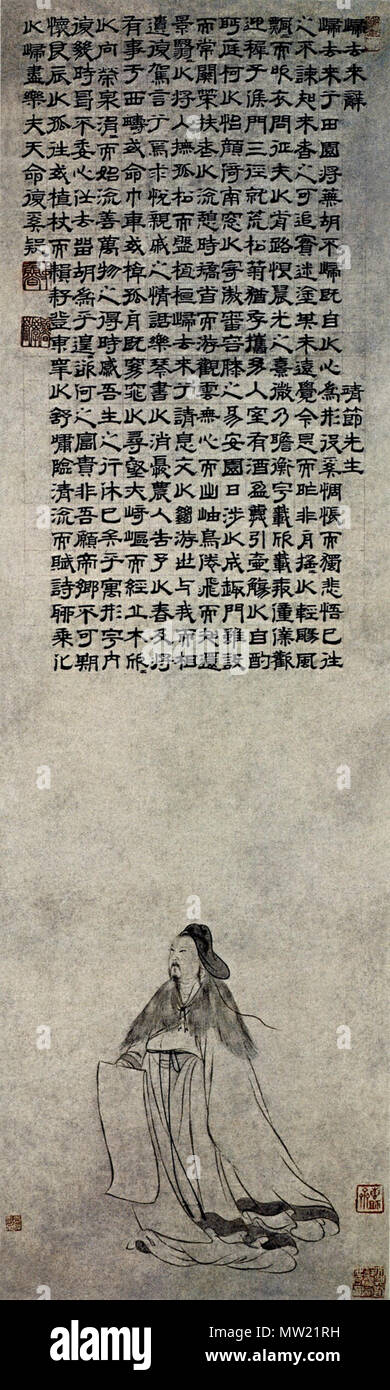 歸去來辭 靖節先生
歸去來兮田園將蕪胡不歸既自以心為形役奚惆悵而獨悲悟已往
之不諫知來者之可追實迷塗其未遠覺今是而昨非舟搖以輕颺風
飄而吹衣問征夫以前路恨晨光之熹微乃瞻衡宇載欣載奔僮僕歡
迎稚子候門三徑就荒松菊猶存攜幼入室有酒盈樽引壺觴以自酌
眄庭柯以怡顏倚南窗以寄傲審容膝之易安園日涉以成趣門雖設
而常關策扶老以流憩時矯首而游觀雲無心而出岫鳥倦飛而知還
景翳翳以將入撫孤松而盤桓歸去來兮請息交以絕游世与我而相
遺復駕言兮焉求悅親戚之情話樂琴書以消憂農人告予以春及將
有事于西疇或命巾車或棹孤舟既窈窕以尋壑亦崎嶇而經丘木欣欣
以向榮泉涓涓而始流善萬物之得時感吾生之行休已矣乎寓形宇內
復幾時曷不委心任去留胡為乎遑遑欲何之富貴非吾願帝鄉不可期
懷良辰以孤往或植杖而耘耔登東皋以舒嘯臨清流而賦詩聊乘化
以歸盡樂夫天命復奚疑
alamy
alamy
Image ID: MW21RH
www.alamy.com